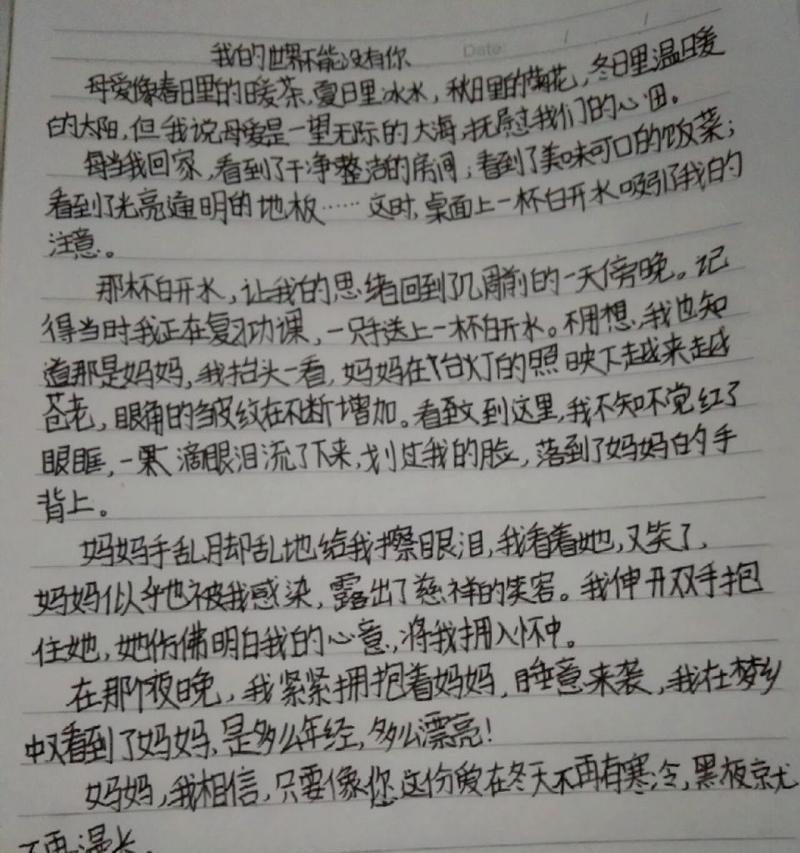 我的世界不能没有你
Date: / /
母爱像春日里的暖茶,夏日里冰水,秋日里的菊花,冬日里温暖
的太阳,但我说母爱是一望无际的大海,抚慰我们的心田。
每当我回家,看到了干净整洁的房间;看到了美味可口的饭菜;
看到了光亮通明的地板……这时,桌面上一杯白开水吸引了我的
注意。
那杯白开水,让我的思绪回到了几周前的一天傍晚。记
得当时我正在复习功课,一只手送上一杯白开水。不用想,我也知
道那是妈妈,我抬头一看,妈妈在台灯的照映下越来越
苍老,眼角的皱纹在不断增加。看到这里,我不知不觉红了
眼眶,一滴眼泪流了下来,划过我的脸,落到了妈妈的手
背上。
妈妈手乱脚乱地给我擦眼泪,我看着她,又笑了,
妈妈似乎也被我感染,露出了慈祥的笑容。我伸开双手抱
住她,她仿佛明白我的心意,将我拥入怀中。
在那个夜晚,我紧紧拥抱着妈妈,睡意来袭,我在梦乡
中又看到了妈妈,是多么年经,多么漂亮!
妈妈,我相信,只要像您这份爱在冬天不再有寒冷,黑板就
不再漫长。